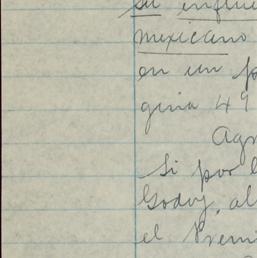 su influe
mexicano
en un p
gina 49
Agr
Si por l
Godoy, al
el Premi